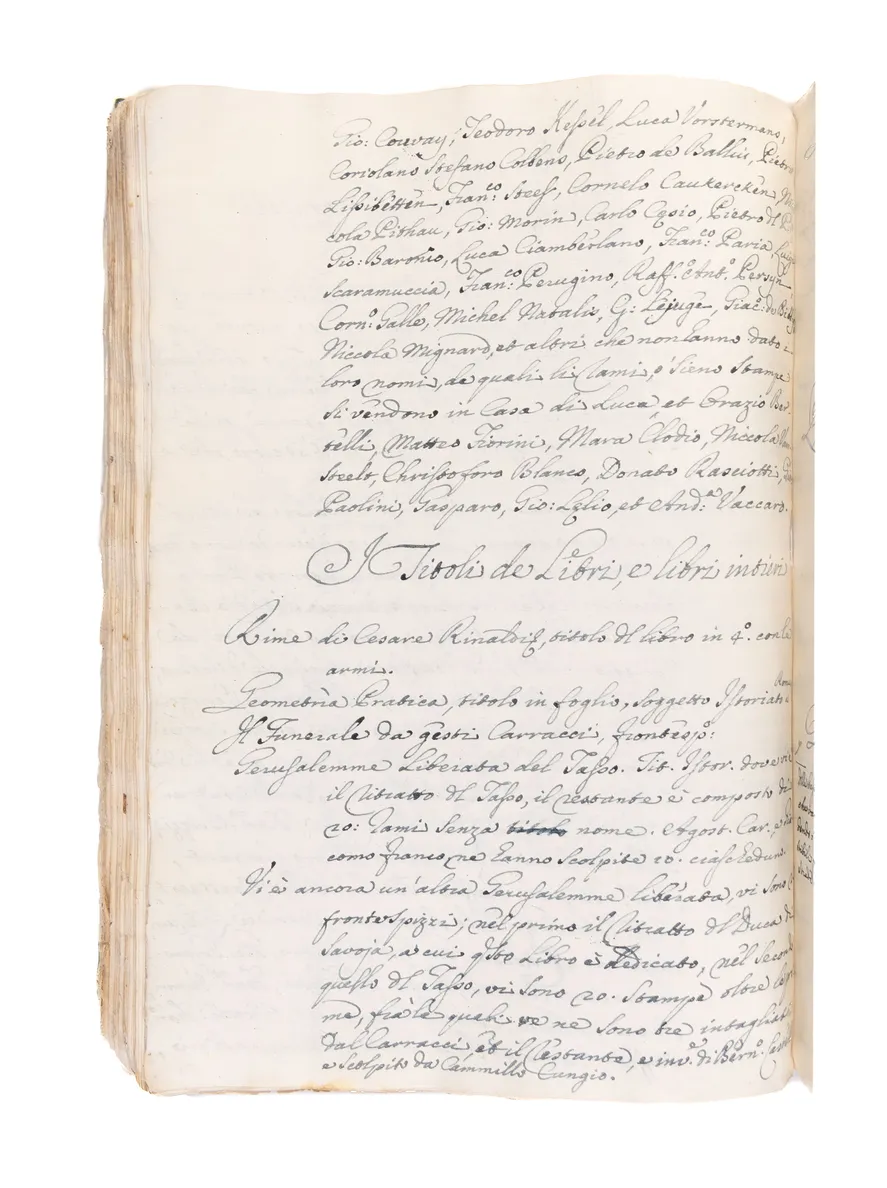 Gio: Couvay, Teodoro Kessel, Luca Vorstermans,
Coriolano Stefano Colbens, Pietro de Balliu, Pietro
Lisibetten, Fran:co Steef, Cornelo Caukercken,
cola Pithau, Gio: Morin, Carlo Cesio, Pietro dl
Gio: Baronio, Luca Ciamberlano, Fran:co Paria, Luigi
Scaramuccia, Fran:co Perugino, Raff:e Ant:o Persyn
Corn:o Galle, Michel Natalis, G: Lejuge, Giac:o de
Niccola Mignard, et altri che non hanno dato i
loro nomi, de quali li Rami, ò sieno Stampe
si vendono in Casa di Luca et Orazio Ber-
telli, Matteo Fiorini, Mara Clodio, Niccola
Steelt, Christoforo Blanco, Donato Rasciotti,
Paolini, Gasparo, Gio: Lelio, et And:a Vaccaro.
Titoli de Libri, e libri intieri
Rime di Cesare Rinaldi, titolo dl libro in 4.o con le
armi.
Geometria Pratica, titolo in foglio, soggetto Istoriato
Il Funerale da gesti Carracci, frontesp:o
Gerusalemme Liberata del Tasso. Tit. Istor. dove vi è
il ritratto dl Tasso, il restante è composto di
20: Rami senza titolo nome. Agost. Car. e
como franco, ne hanno scolpite 10. ciascheduno.
Vi è ancora un'altra Gerusalemme liberata, vi sono
frontespizzi; nel primo il ritratto dl Duca di
Savoja, a cui qsto Libro è dedicato, nel secondo
quello dl Tasso, vi sono 20. Stampe oltre le
me, frà le quali ve ne sono tre intagliate
dal Carracci et il restante, e inv.e di Bern.o
e scolpito da Cammillo Cungio.